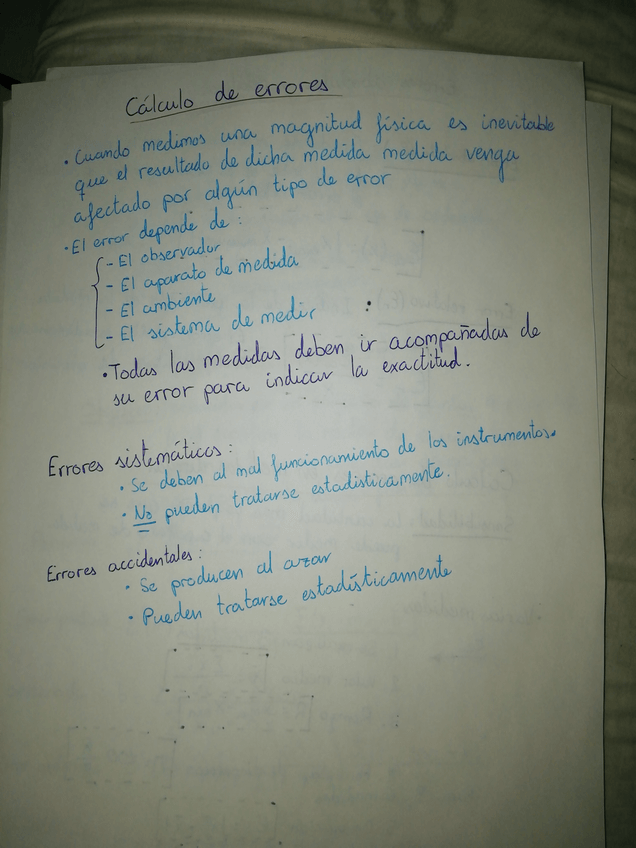 Cálculo de errores
• Cuando medimos una magnitud física es inevitable
que el resultado de dicha medida medida venga
afectado por algún tipo de error
• El error depende de :
- El observador
- El aparato de medida
- El ambiente
- El sistema de medir
• Todas las medidas deben ir acompañadas de
su error para indicar la exactitud.
Errores sistemáticos :
• Se deben al mal funcionamiento de los instrumentos.
• No pueden tratarse estadisticamente.
Errores accidentales :
• Se producen al azar
• Pueden tratarse estadísticamente